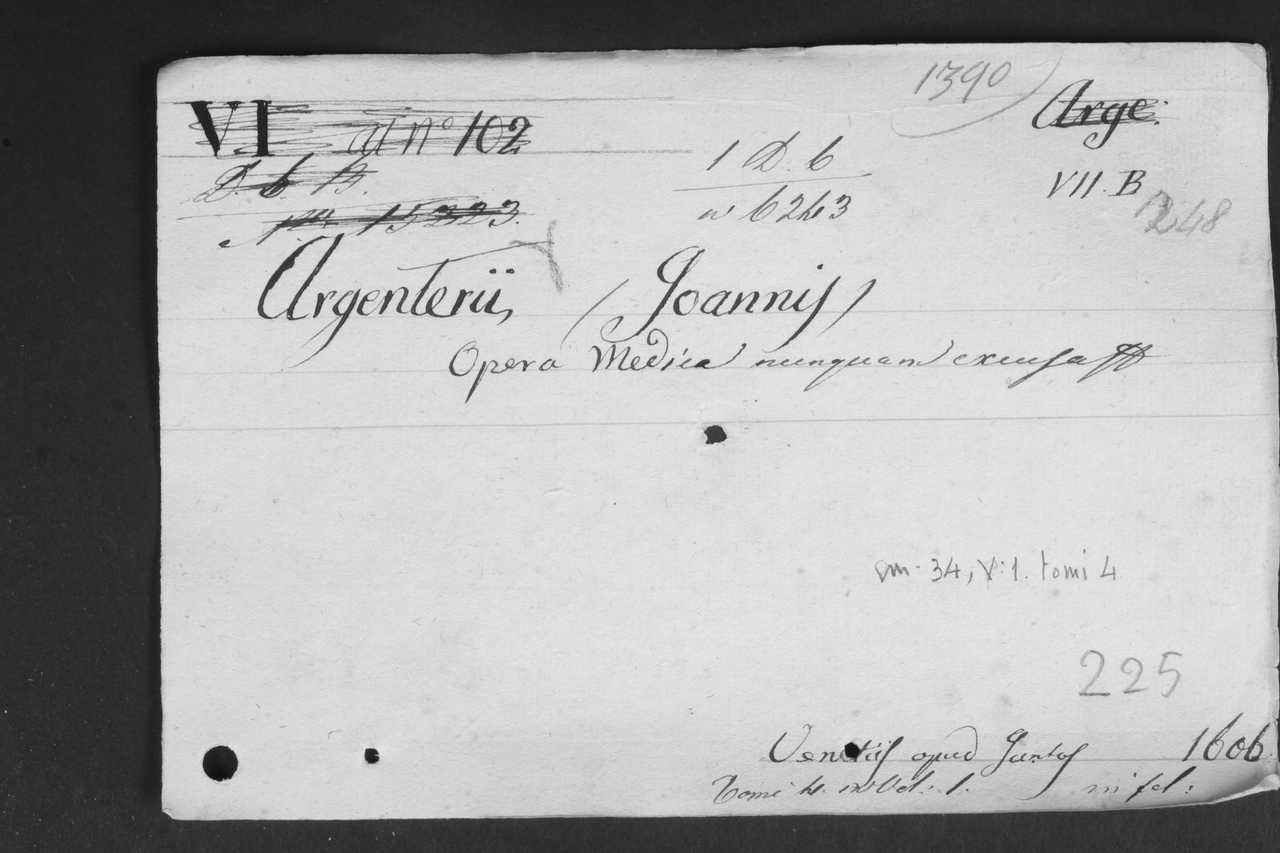 1390
VI ad nº 102
Arge:
D. b. B.
1 D. 6
VII. B
nr 15223.
nº 6243
1248
Argenterii, (Joannis)
Opera Medica nunquam excusa
cm. 34, V: 1. tomi 4
225
Venetiis apud Juntas 1606
Tomi 4. in Vol: 1. in fol: